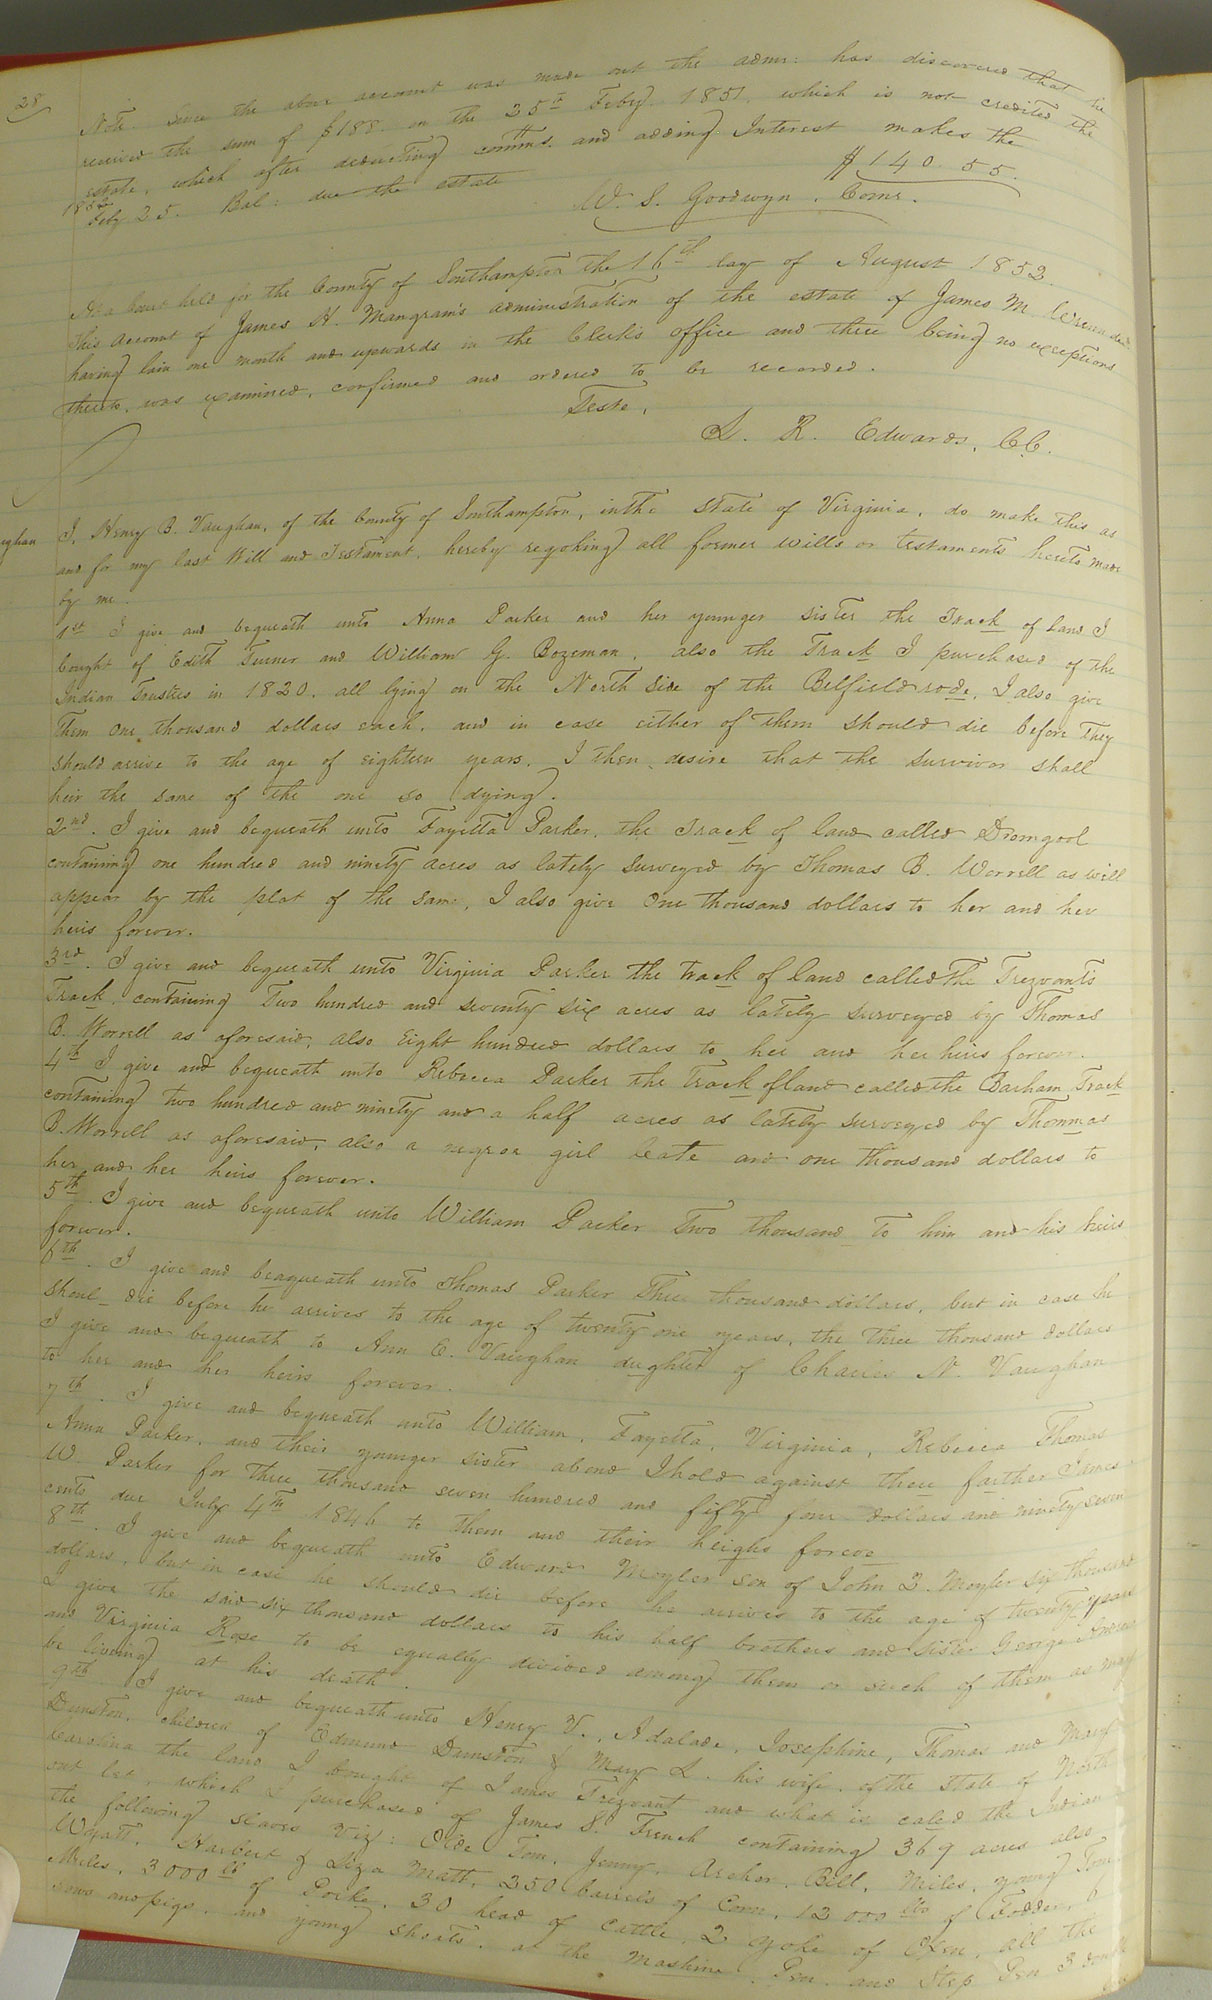 28
Note. Since the above account was made out the admr: has discovered that he
received the sum of $188. on the 25th Feby. 1851. which is not credited the
estate, which after deducting comms. and adding Interest makes the
1852
Feby 25. Bal: due the estate $140.55.
W. S. Goodwyn, Comr.
At a Court held for the County of Southampton the 16th day of August 1852.
This account of James H. Mangram's administration of the estate of James M. Wrenn decd.
having lain one month and upwards in the Clerk's office and there being no exceptions
thereto, was examined, confirmed and ordered to be recorded.
Teste,
L. R. Edwards, C.C.
ughan
I, Henry B. Vaughan, of the County of Southampton, in the State of Virginia, do make this as
and for my last Will and Testament, hereby revoking all former wills or testaments hereto made
by me.
1st I give and bequeath unto Anna Parker and her younger sister the Track of land I
bought of Edith Turner and William G. Bozeman, also the Track I purchased of the
Indian Trustees in 1820, all lying on the North side of the Belfield rode, I also give
them one thousand dollars each, and in case either of them should die before they
should arrive to the age of eighteen years, I then desire that the survivor shall
heir the same of the one so dying.
2nd. I give and bequeath unto Fayetta Parker, the Track of land called Dromgool
containing one hundred and ninety acres as lately surveyed by Thomas B. Worrell as will
appear by the plat of the same, I also give One thousand dollars to her and her
heirs forever.
3rd. I give and bequeath unto Virginia Parker the track of land called the Trezvants
Track, containing Two hundred and seventy six acres as lately surveyed by Thomas
B. Worrell as aforesaid, also Eight hundred dollars to her and her heirs forever.
4th I give and bequeath unto Rebecca Parker the track of land called the Barham Track
containing two hundred and ninety and a half acres as lately surveyed by Thommas
B. Worrell as aforesaid, also a negroe girl Cate and one thousand dollars to
her and her heirs forever.
5th. I give and bequeath unto William Parker Two thousand to him and his heirs
forever.
6th. I give and beaqueath unto Thomas Parker Three thousand dollars, but in case he
shoul die before he arrives to the age of twenty one years, the three thousand dollars
I give and bequeath to Ann E. Vaughan dughter of Charles N. Vaughan
to her and her heirs forever.
7th. I give and bequeath unto William, Fayetta, Virginia, Rebecca Thomas
Anna Parker, and their younger sister a bond I hold against there farther James
W. Parker for three thousand seven hundred and fifty four dollars and ninety seven
cents due July 4th 1846 to them and their heighs forever
8th. I give and bequeath unto Edward Moyler son of John T. Moyler six thousand
dollars, but in case he should die before he arrives to the age of twenty years
I give the said six thousand dollars to his half brothers and sister George Andrew
and Virginia Rose to be equally divided among them or such of them as may
be liveing at his death.
9th. I give and bequeath unto Henry V., Adalade, Josephine, Thomas and Mary
Dunston, children of Edmund Dunston & Mary L. his wife, of the State of North
Carolina the land I bought of James Trezvant and what is caled the Indian
out let, which I purchased of James S. French containing 369 acres also
the following slaves Viz: Olde Tom, Jenny, Archer, Bill, Miles, young Tom
Wyatt, Harbert & Liza Matt, 250 barrels of Corn, 12000 lbs of Fodder, 6
Mules, 3000 lbs of Porke, 30 head of cattle, 2 yoke of Oxen, all the
sows and pigs, and young shoats, at the mashine Pen and Step Pen 3